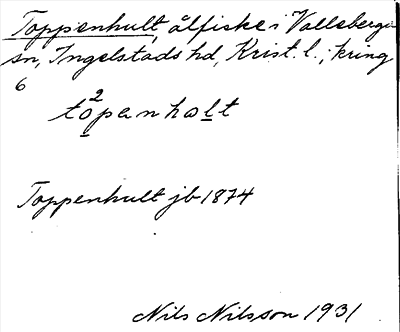 Toppenhult, ålfiske i Valleberga
sn, Ingelstads hd, Krist. l.; kring
6
tòpanhalt
Toppenhult jb 1874
Nils Nilsson 1931